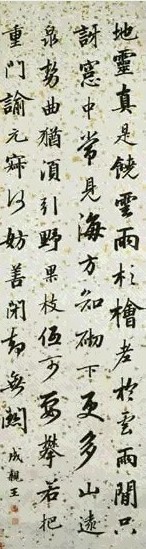 地靈真是饒雲雨杉檜老於雲雨間只
訝窓中常見海方知砌下更多山遠
泉勢曲猶須引野果枝低可要攀若把
重門諭元寂何妨善閉却無關 成親王